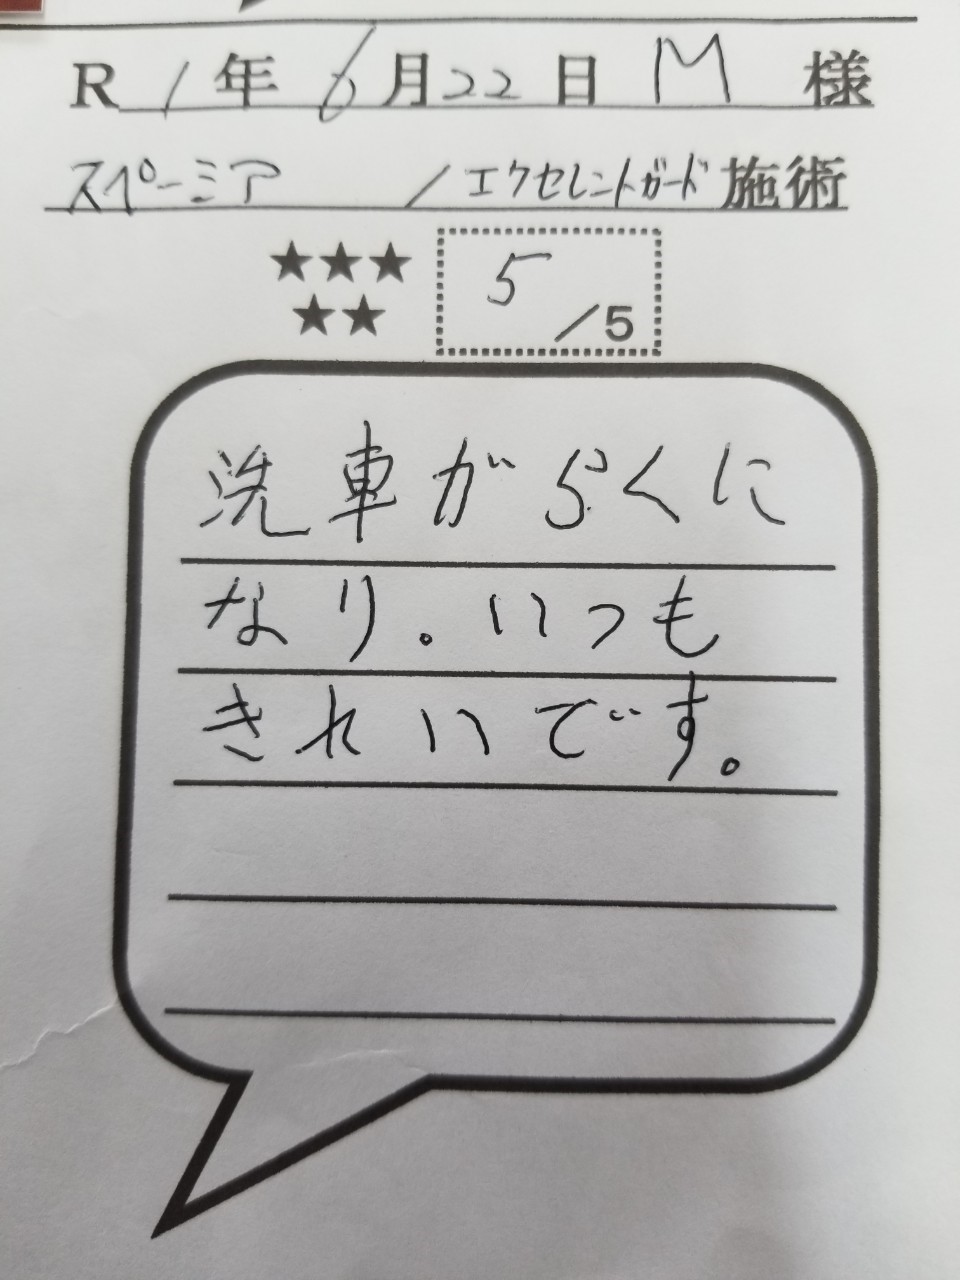 R 1 年 6 月 22 日 M 様
スペーミア / エクセレントガード 施術
★★★
★★
5 /5
洗車がらくに
なり。いつも
きれいです。